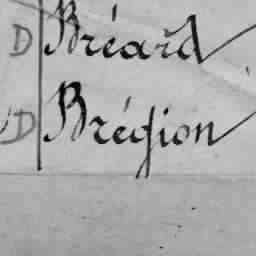 D Bréard
D Brégion